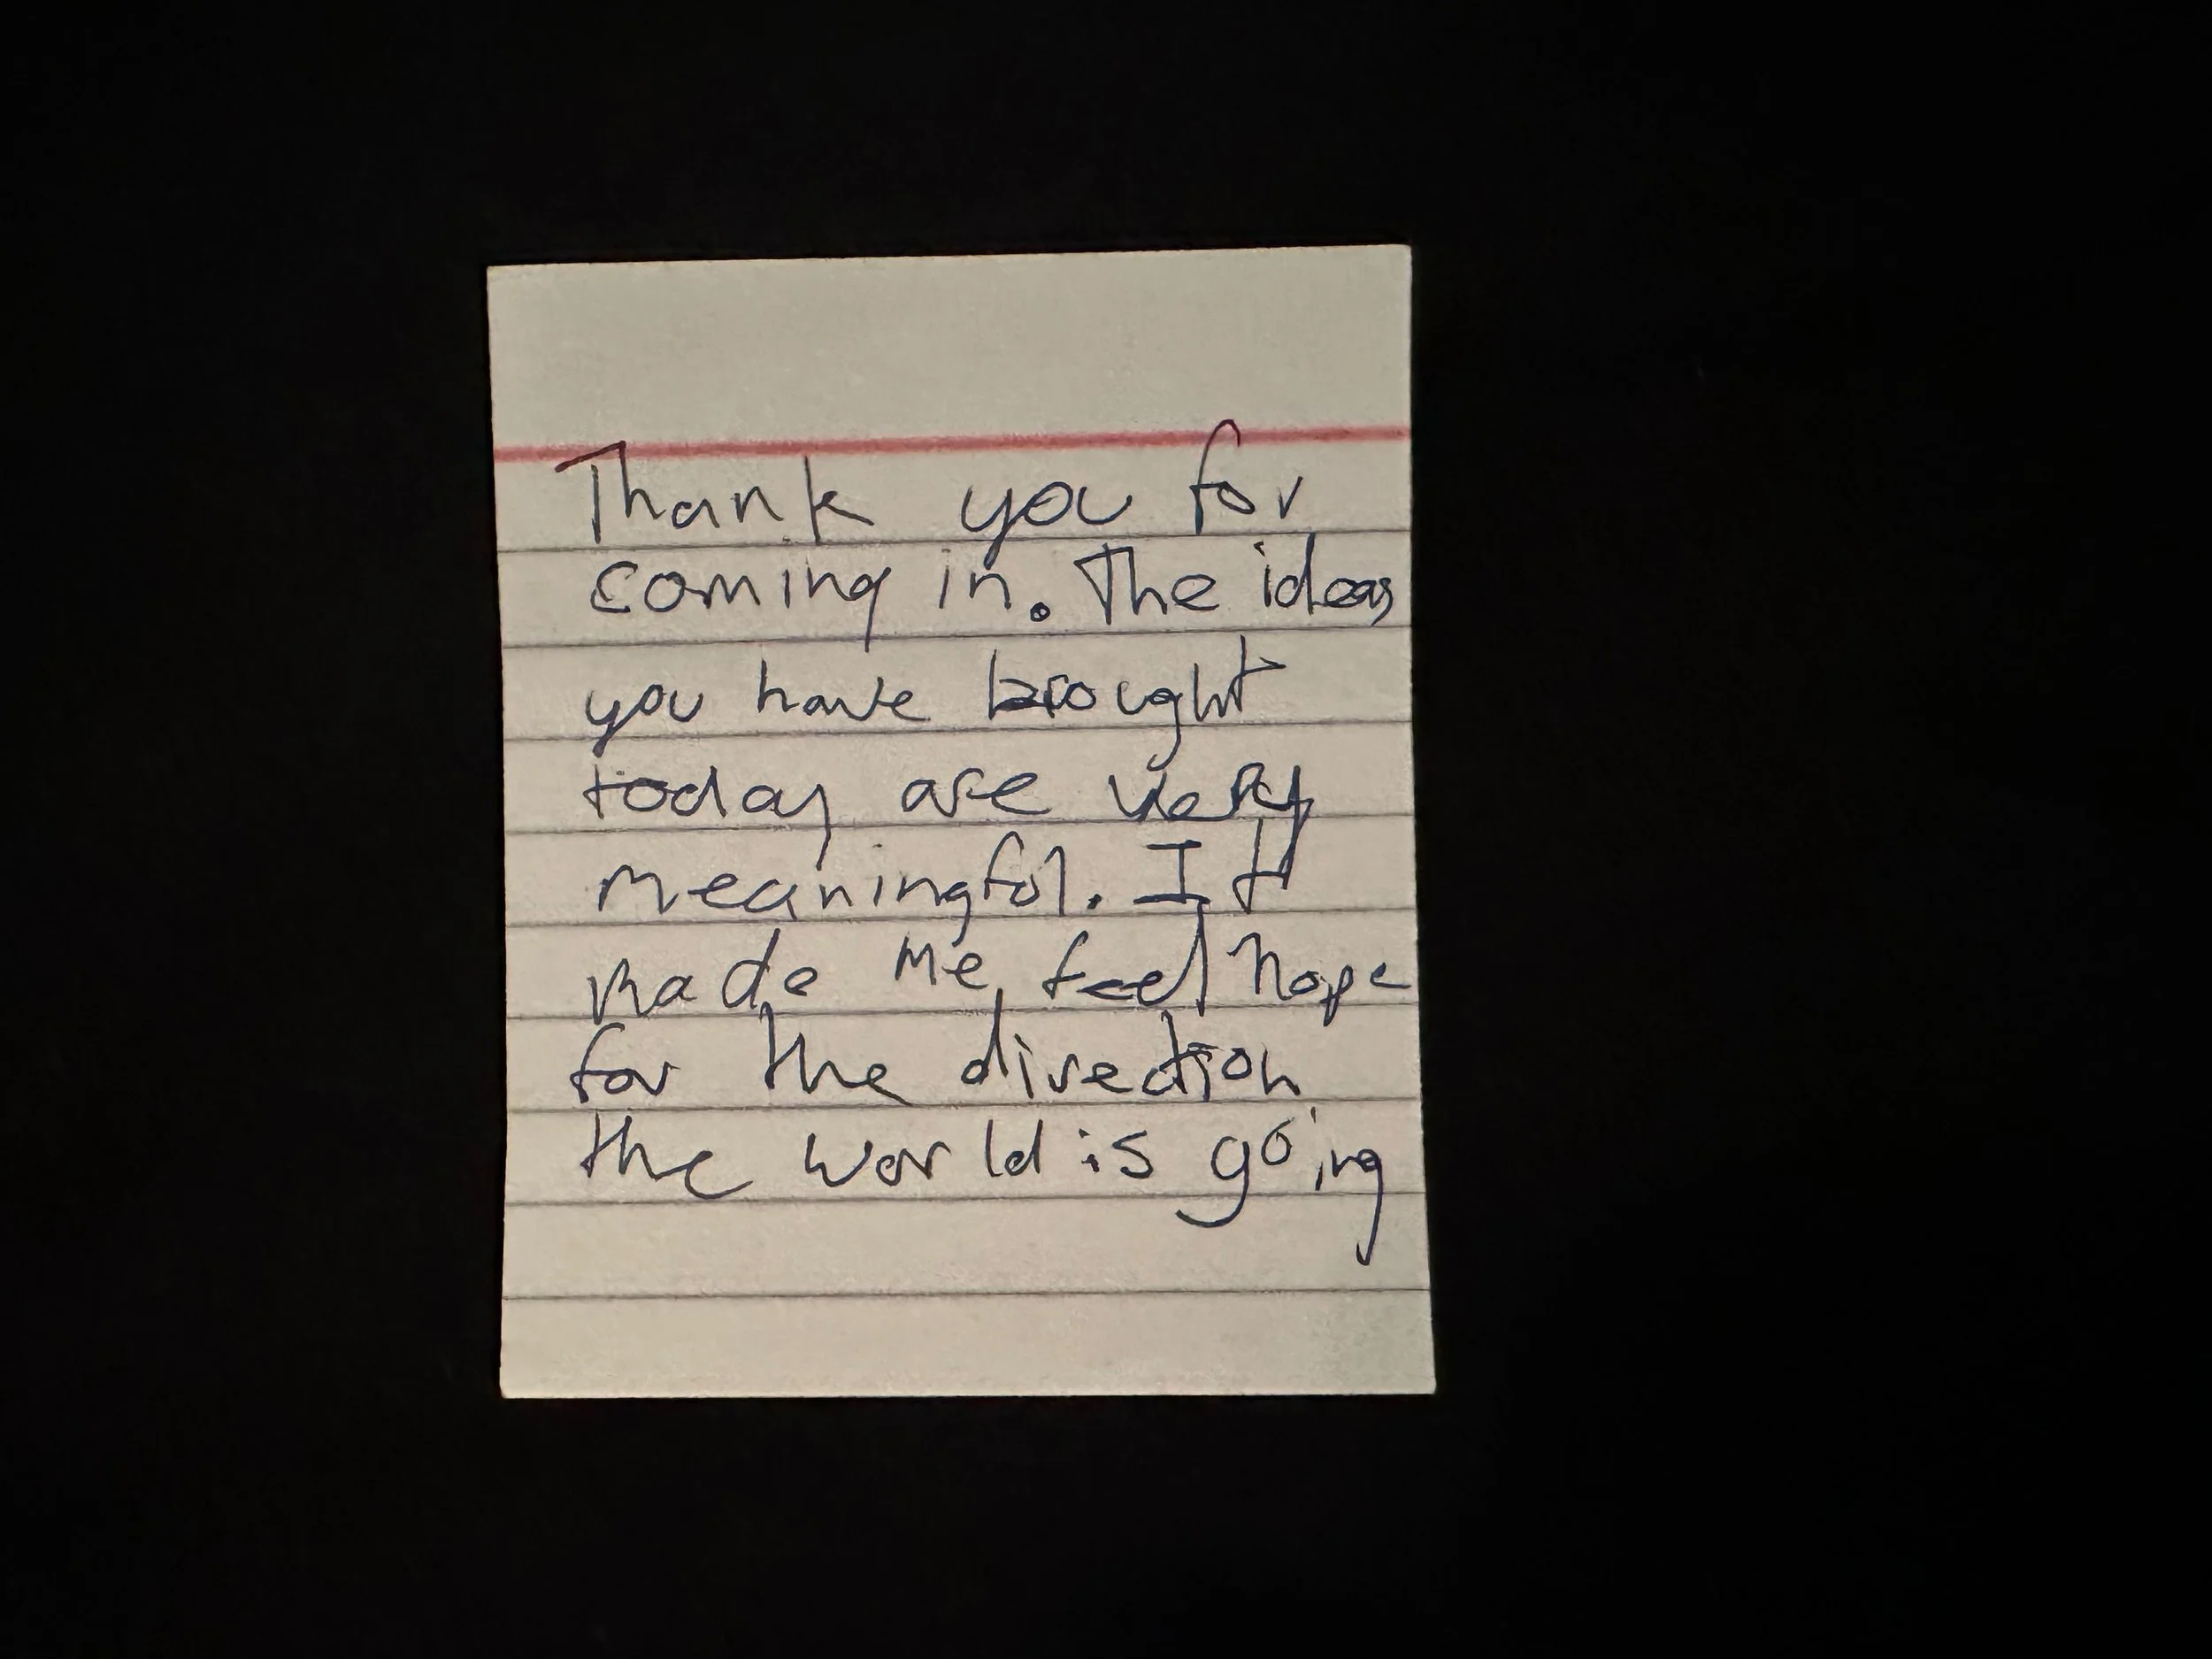 Thank you for
coming in. The ideas
you have brought
today are very
meaningful. It
made me feel hope
for the direction
the world is going